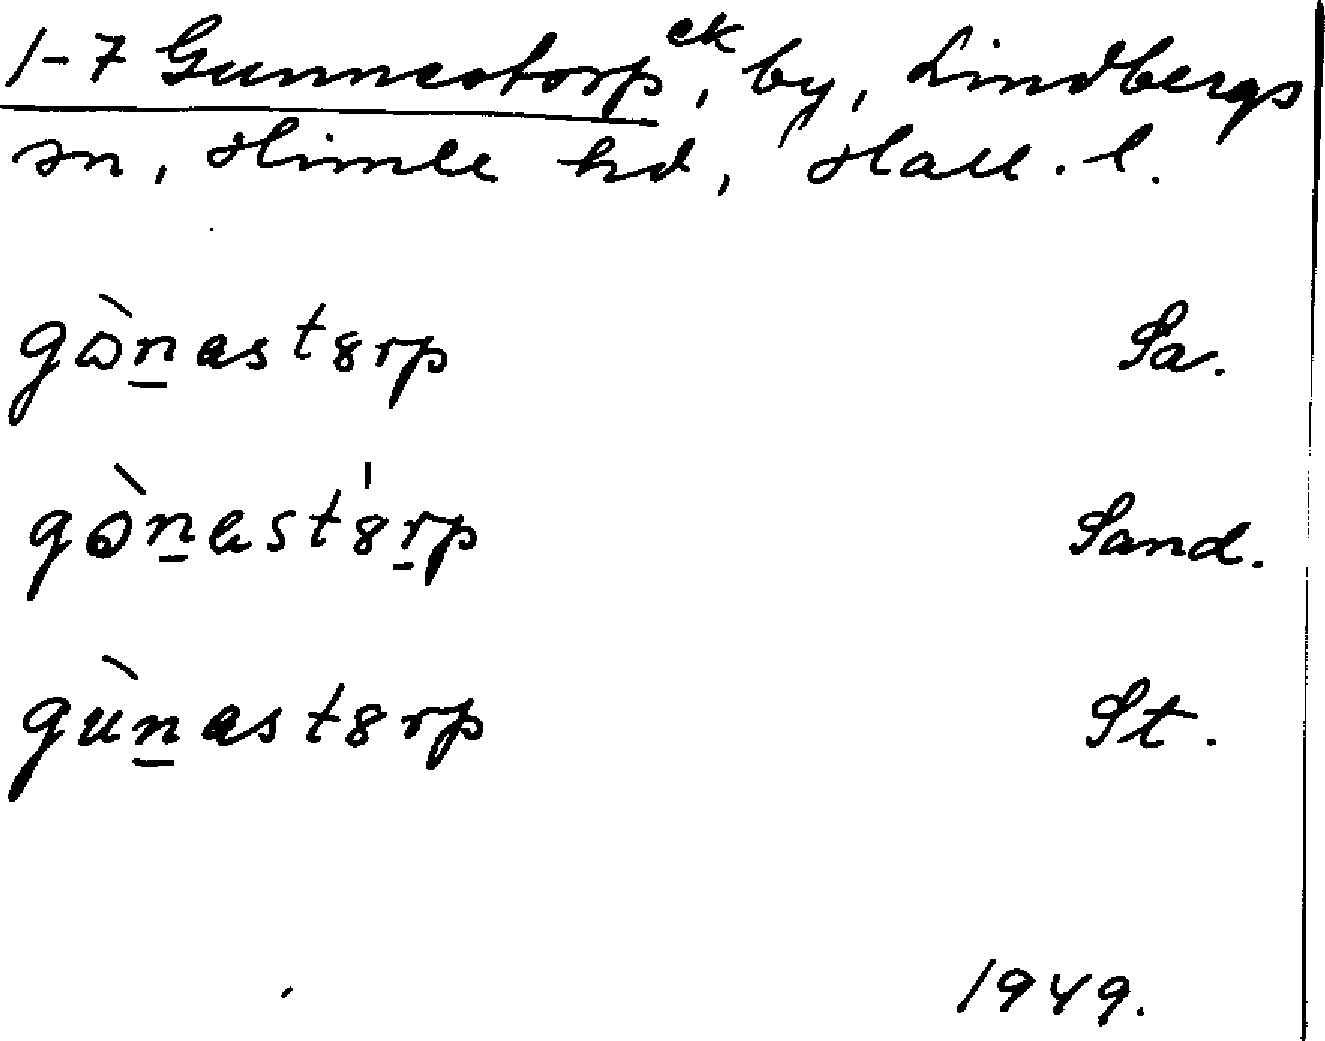 1-7 Gunnestorp ek, by, Lindbergs
sn, Himle hd, Hall. l.
gὼn̲astȣrp Sa.
gὼn̲ast'ȣr̲p Sand.
gùn̲astȣrp St.
1949.